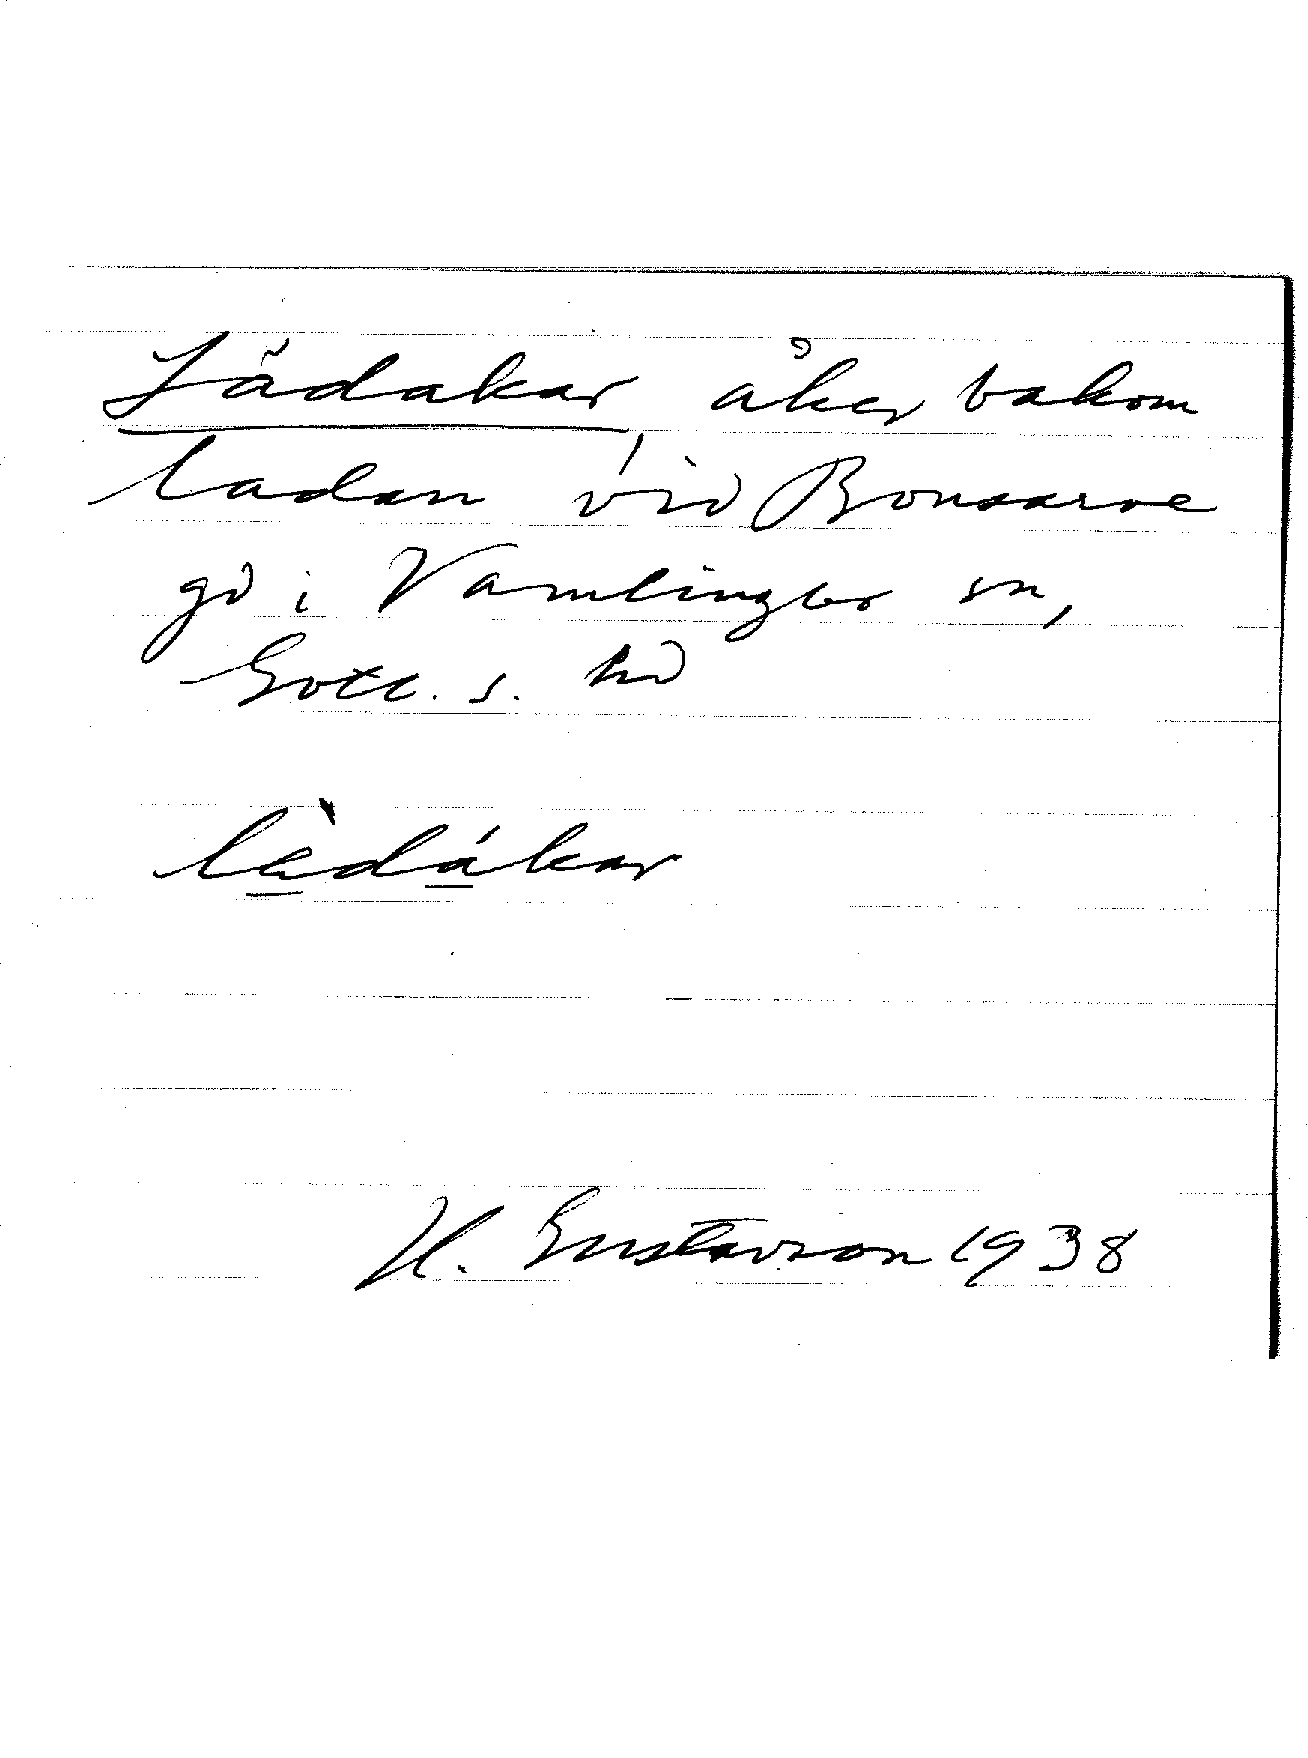 Lädakar, åker bakom
ladan vid Bonsarve
gd i Vamlingbo sn,
Gotl. s. hd
lädákar
H. Gustavson 1938